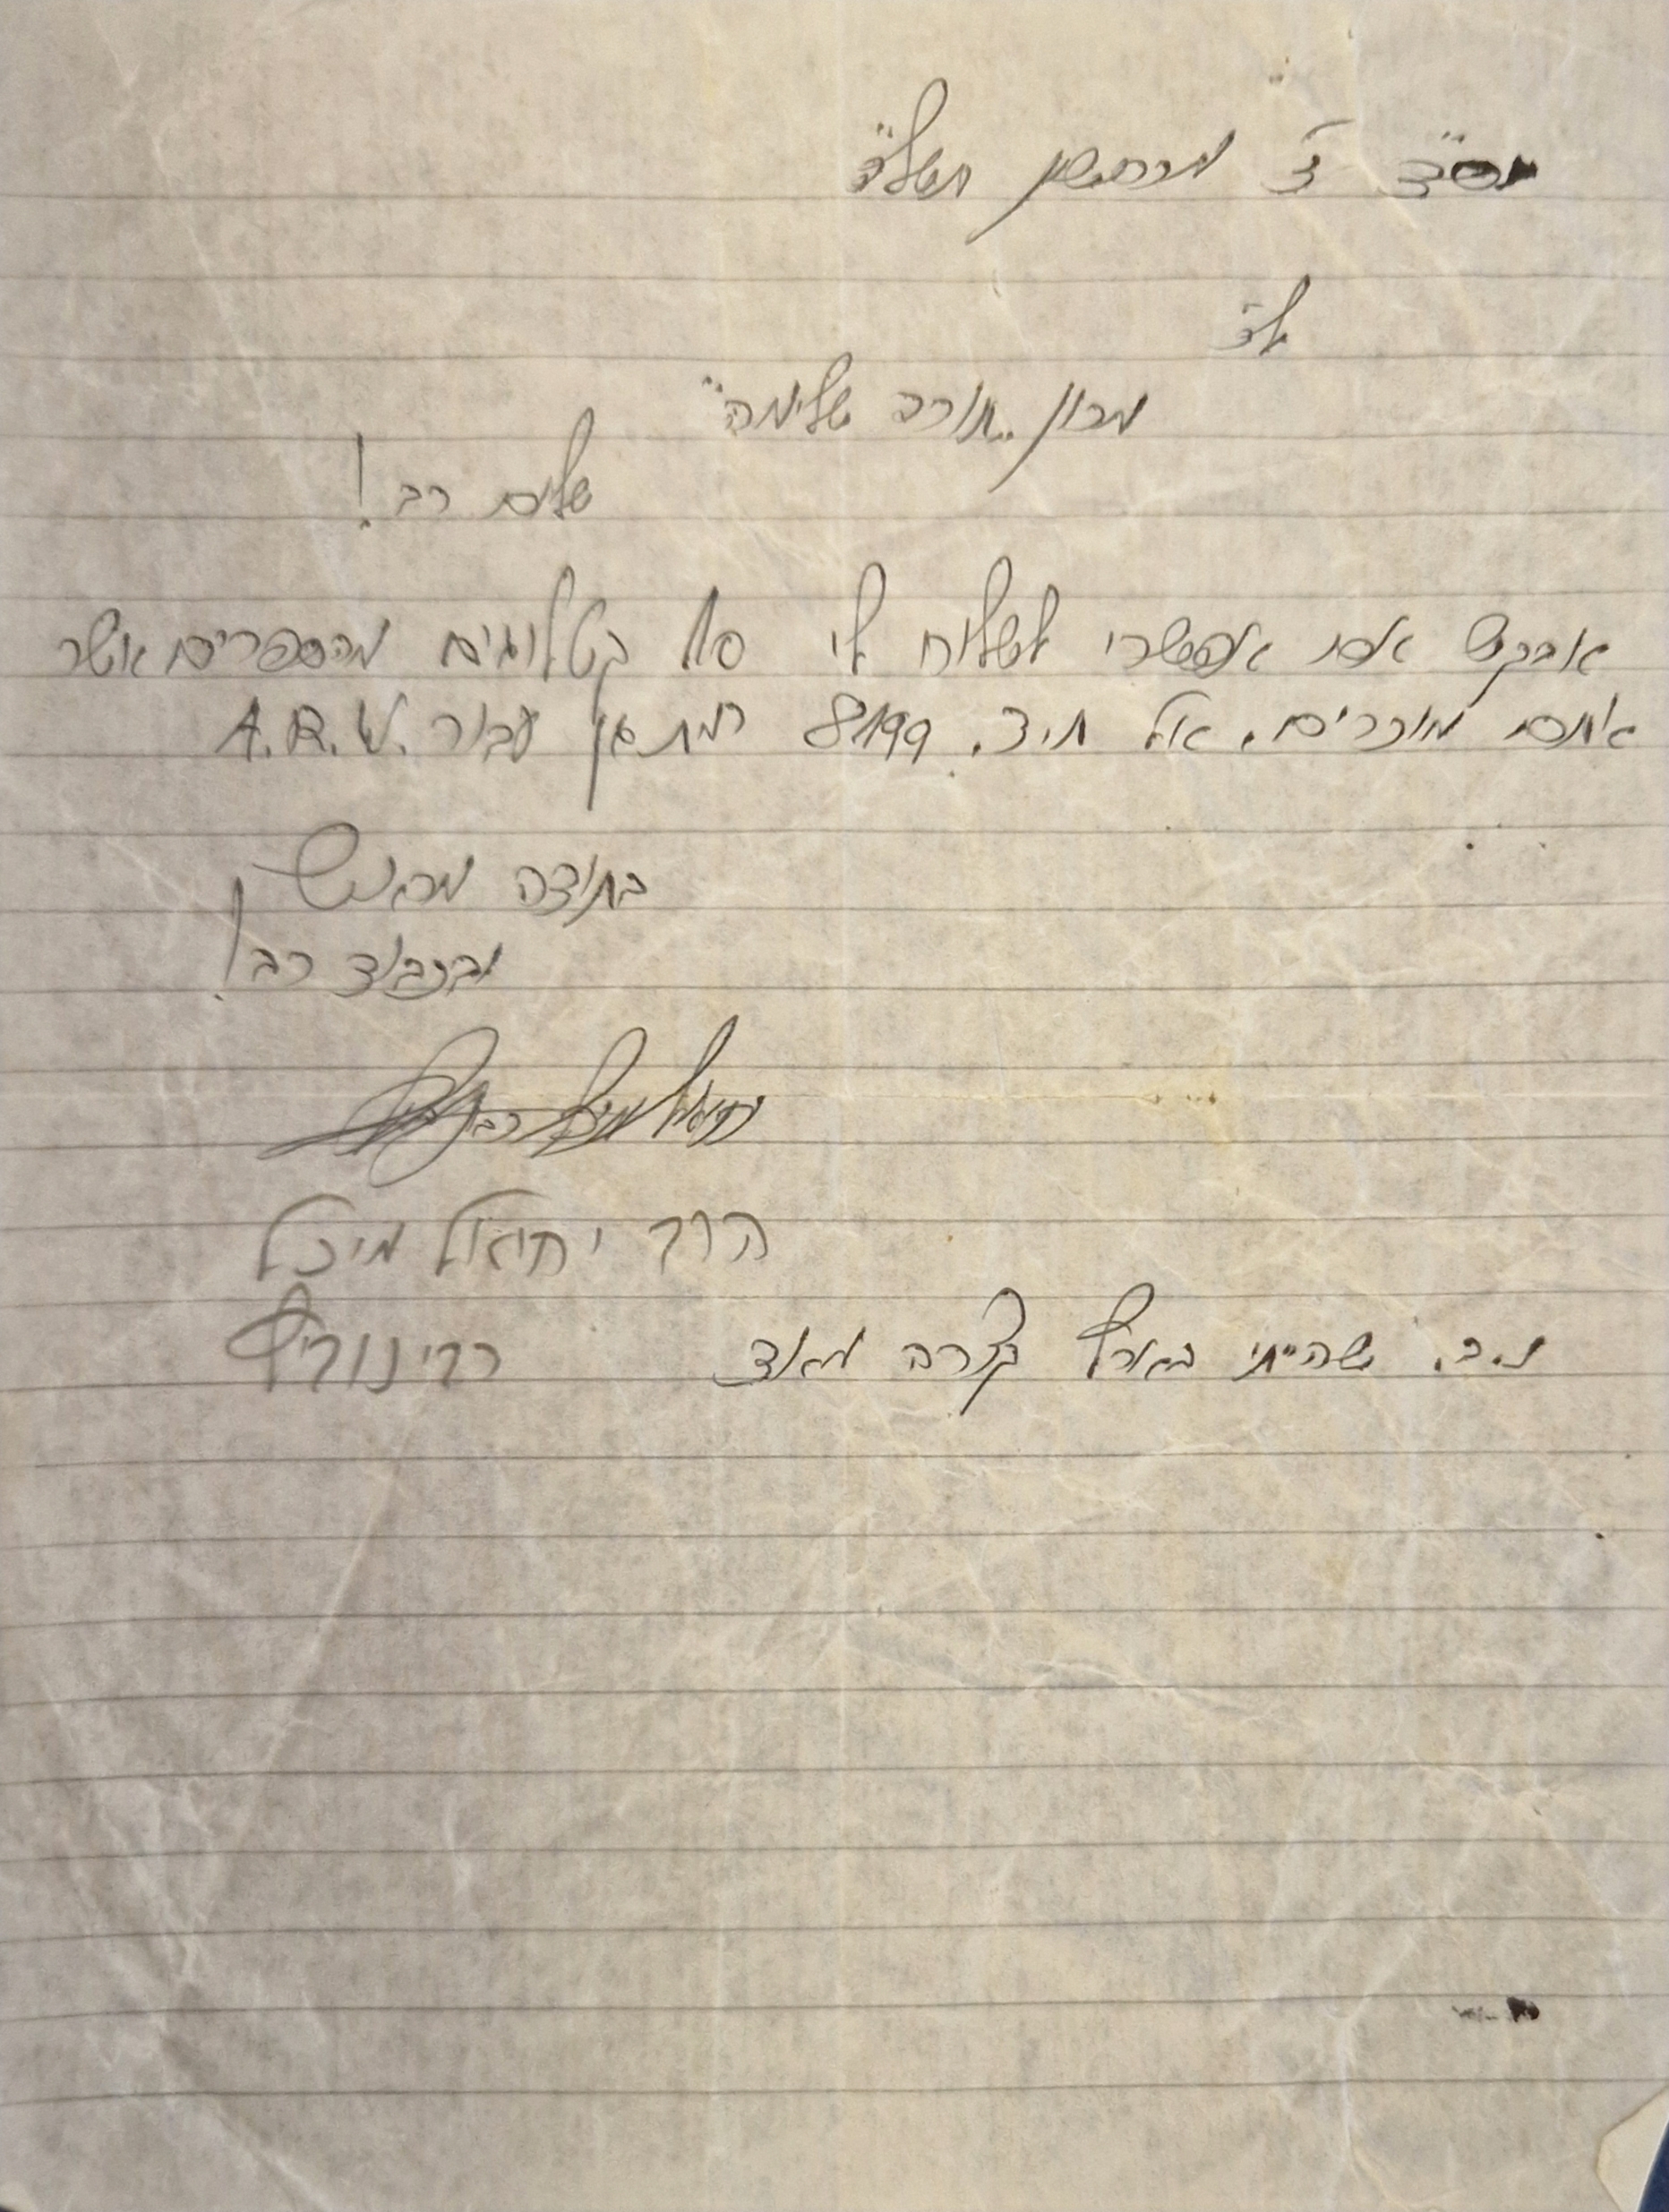 בס"ד ז' מרחשון תשל"ד
לכ'
מכון "תורה שלימה"
שלום רב!
אבקש אם אפשרי לשלוח לי 10 קטלוגים מהספרים אשר
אתם מוכרים. אל ת.ד. 8199 רמת גן עבור A.R.W.
בתודה מראש
ובכבוד רב!
יחיאל מיכל
הרב יחיאל מיכל
נ.ב. שהייתי בארץ קצרה מאוד